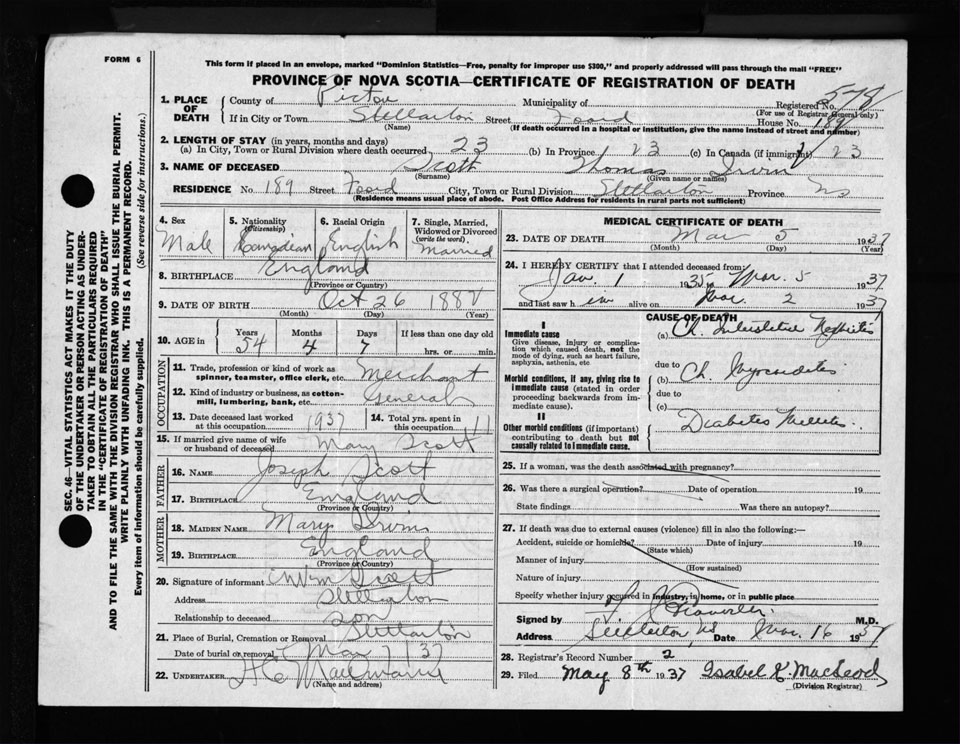 FORM 6
This form if placed in an envelope, marked "Dominion Statistics—Free, penalty for improper use $300," and properly addressed will pass through the mail "FREE"
PROVINCE OF NOVA SCOTIA—CERTIFICATE OF REGISTRATION OF DEATH
578
1. PLACE OF DEATH County of Pictou Municipality of Registered No. (For use of Registrar General only)
If in City or Town Stellarton (Name) Street Foord House No. 189
(If death occurred in a hospital or institution, give the name instead of street and number)
2. LENGTH OF STAY (in years, months and days)
(a) In City, Town or Rural Division where death occurred 23 (b) In Province 23 (c) In Canada (if immigrant) 23
3. NAME OF DECEASED Scott (Surname) Thomas Irvin (Given name or names)
RESIDENCE No. 189 Street Foord City, Town or Rural Division Stellarton Province NS
(Residence means usual place of abode. Post Office Address for residents in rural parts not sufficient)
4. Sex Male
5. Nationality (Citizenship) Canadian
6. Racial Origin English
7. Single, Married, Widowed or Divorced (write the word) Married
8. BIRTHPLACE England (Province or Country)
9. DATE OF BIRTH Oct 26 1882 (Month) (Day) (Year)
10. AGE in Years 54 Months 4 Days 7 If less than one day old hrs. or min.
OCCUPATION
11. Trade, profession or kind of work as spinner, teamster, office clerk, etc. Merchant
12. Kind of industry or business, as cotton-mill, lumbering, bank, etc. General
13. Date deceased last worked at this occupation 1937
14. Total yrs. spent in this occupation 11
15. If married give name of wife or husband of deceased Mary Scott
FATHER
16. NAME Joseph Scott
17. BIRTHPLACE England (Province or Country)
MOTHER
18. MAIDEN NAME Mary Irvin
19. BIRTHPLACE England (Province or Country)
20. Signature of informant Wm Scott
Address Stellarton
Relationship to deceased son
21. Place of Burial, Cremation or Removal Stellarton
Date of burial or removal Mar 7 37
22. UNDERTAKER (Name and address)
MEDICAL CERTIFICATE OF DEATH
23. DATE OF DEATH Mar 5 1937 (Month) (Day) (Year)
24. I HEREBY CERTIFY that I attended deceased from
Jan. 1 1935 to Mar. 5 1937
and last saw him alive on Mar. 2 1937
CAUSE OF DEATH
I
Immediate cause
Give disease, injury or complication which caused death, not the mode of dying, such as heart failure, asphyxia, asthenia, etc
(a) Ch. Interstitial Nephritis
due to
Morbid conditions, if any, giving rise to immediate cause (stated in order proceeding backwards from immediate cause).
(b) Ch. Myocarditis
due to
(c)
II
Other morbid conditions (if important) contributing to death but not causally related to immediate cause.
Diabetes Mellitus
25. If a woman, was the death associated with pregnancy?
26. Was there a surgical operation? Date of operation 19
State findings Was there an autopsy?
27. If death was due to external causes (violence) fill in also the following:—
Accident, suicide or homicide? (State which) Date of injury 19
Manner of injury (How sustained)
Nature of injury
Specify whether injury occurred in industry, in home, or in public place
Signed by M.D.
Address Stellarton NS Date Mar. 16 1937
28. Registrar's Record Number 2
29. Filed May 8th 1937 Isabel K. MacLeod (Division Registrar)
SEC. 46—VITAL STATISTICS ACT MAKES IT THE DUTY
OF THE UNDERTAKER OR PERSON ACTING AS UNDER-
TAKER TO OBTAIN ALL THE PARTICULARS REQUIRED
IN THE "CERTIFICATE OF REGISTRATION OF DEATH"
AND TO FILE THE SAME WITH THE DIVISION REGISTRAR WHO SHALL ISSUE THE BURIAL PERMIT.
WRITE PLAINLY WITH UNFADING INK. THIS IS A PERMANENT RECORD.
Every item of information should be carefully supplied. (See reverse side for instructions.)